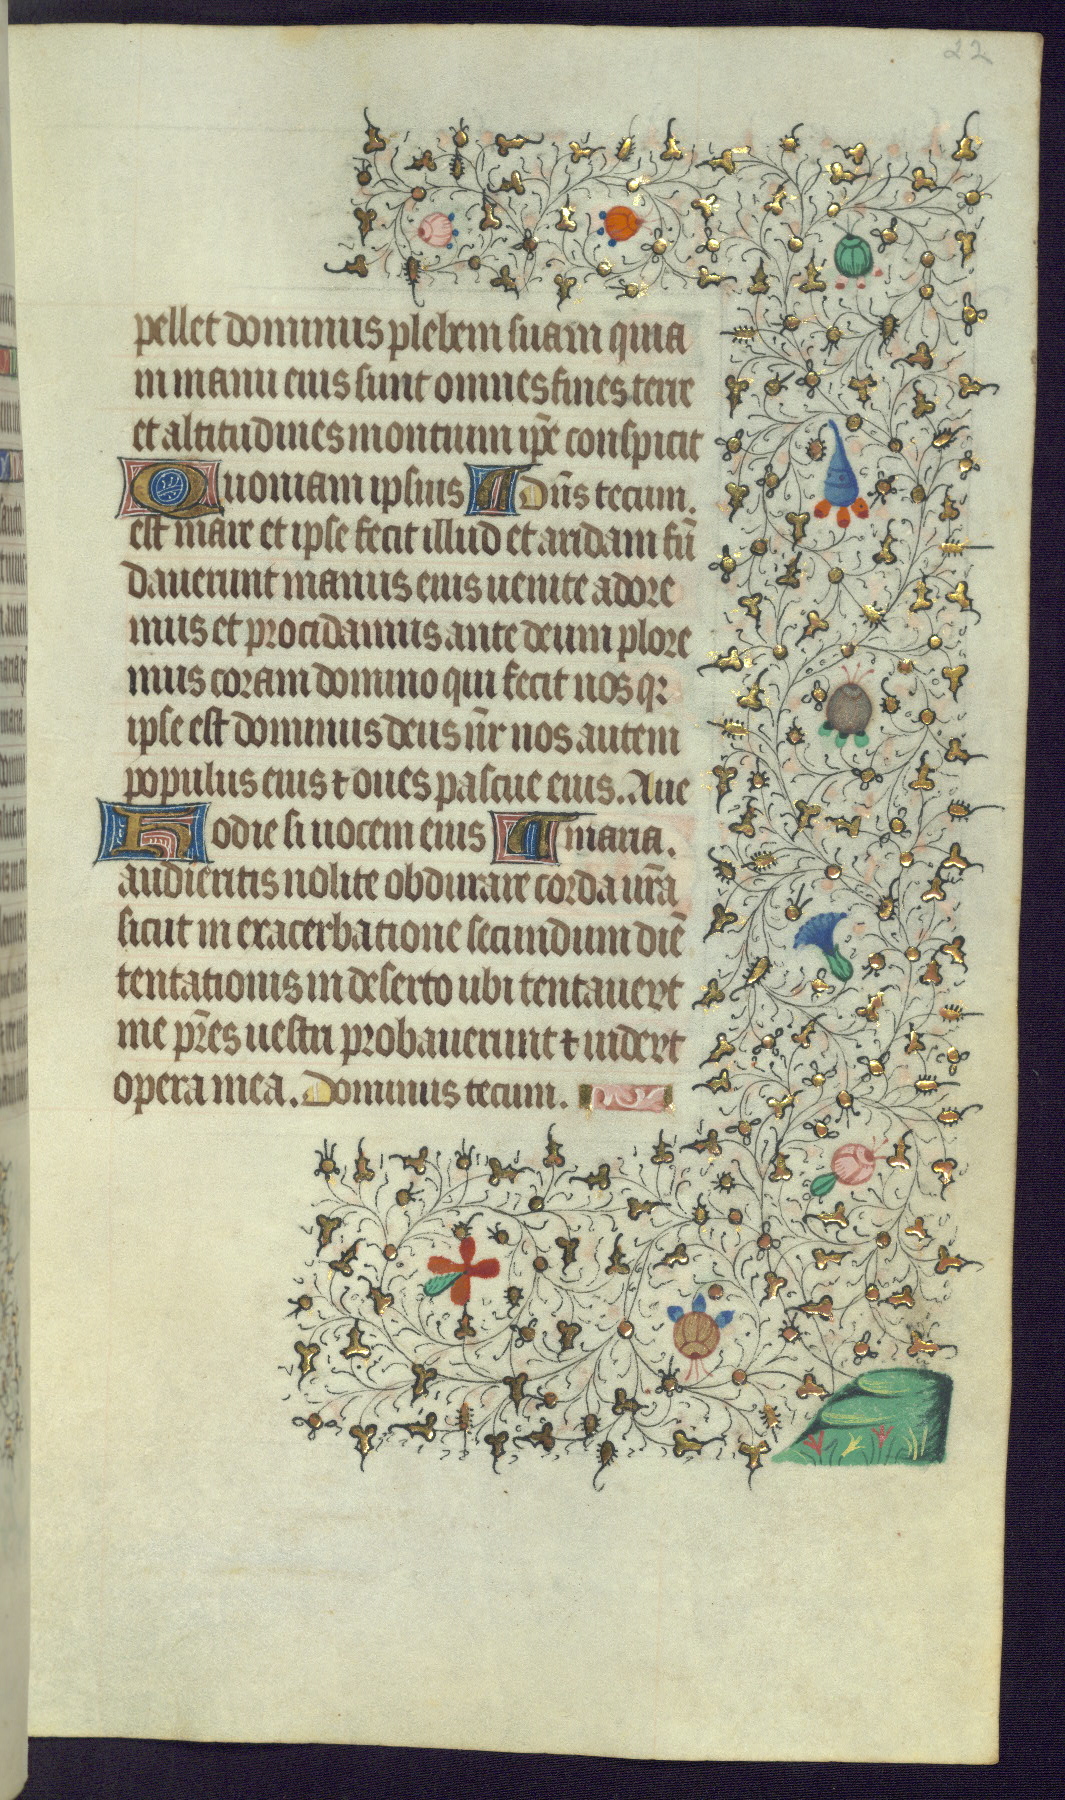 22
pellet dominus plebem suam quia
in manu eius sunt omnes fines terre
et altitudines montium ip̄e conspicit
Quoniam ipsius Dn̄s tecum.
est mare et ipse fecit illud et aridam fū
dauerunt manus eius uenite adore
mus et procidamus ante deum plore
mus coram domino qui fecit nos qr
ipse est dominus deus nr̄ nos autem
populus eius ⁊ oues pascue eius. Aue
Hodie si uocem eius maria.
audieritis nolite obdurare corda ur̄a
sicut in exacerbatione secundum diē
tentationis in deserto ubi tentauert
me pr̄es uestri probauerunt ⁊ uidert
opera mea. Dominus tecum.